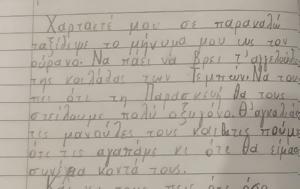 Χαρταετέ μου σε παρακαλώ
ταξίδεψε το μήνυμα μου ως τον
ουρανο. Να πάει να βρει τ' αγγελούδια
της κοιλάδας των Τεμπών. Να τους
πει ότι τη Παρασκευή θα τους
στείλουμε πολύ οξυγόνο. Θ' αγκαλιάσ
τις μανούλες τους και θα τις πούμε
ότι τις αγαπάμε κι ότι θα είμασ
συνέχεια κοντά τους.